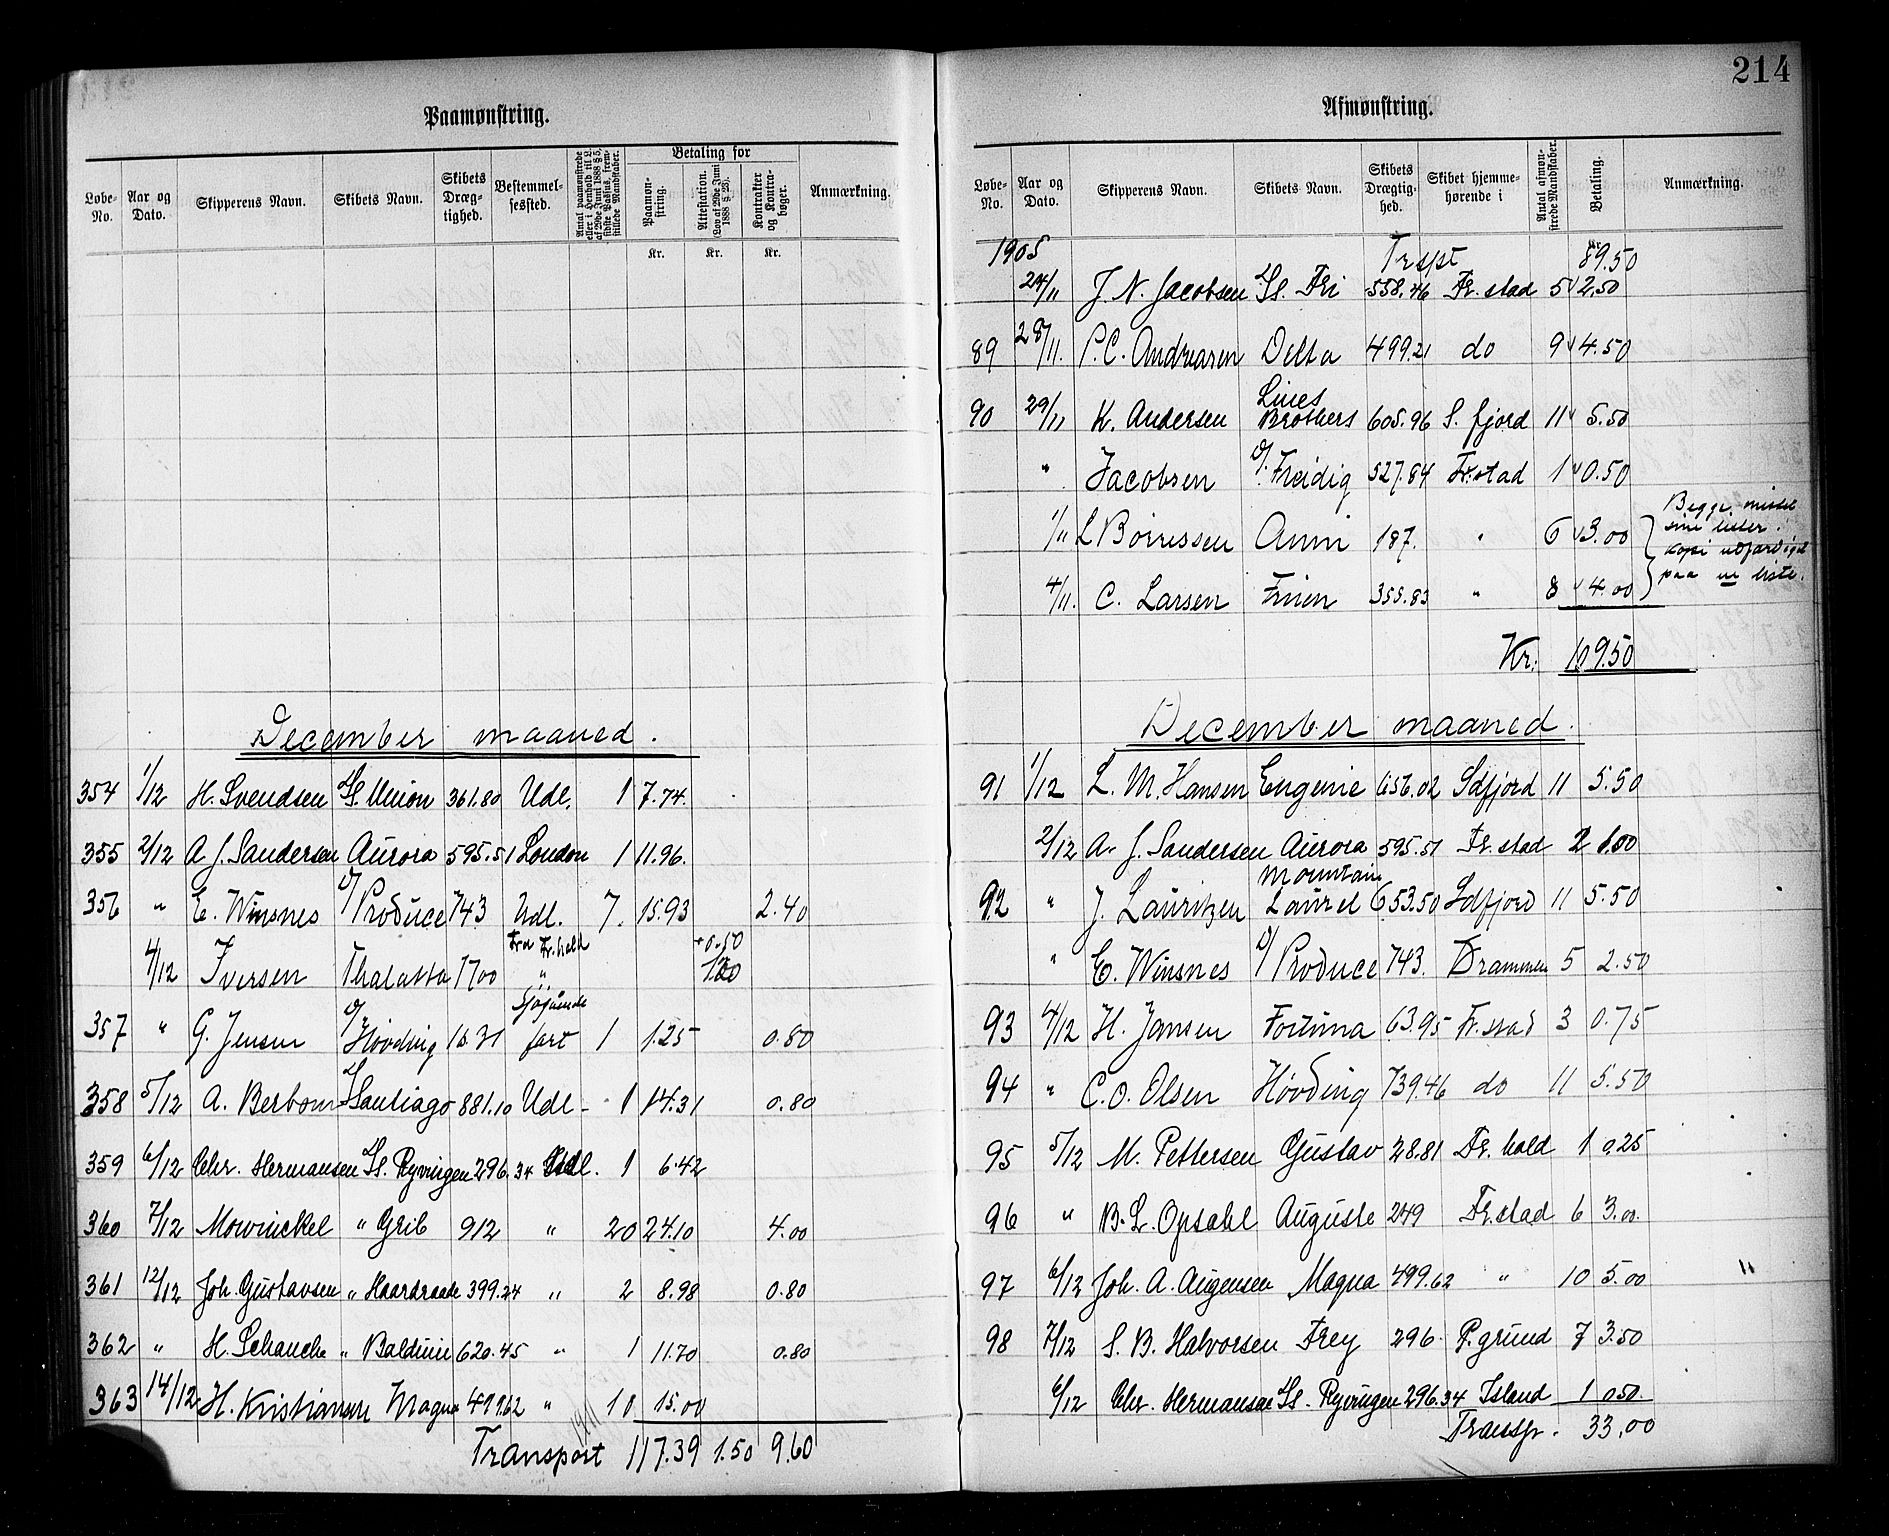 214
Paamønstring.
Løbe-No. Aar og Dato. Skipperens Navn. Skibets Navn. Skibets Dræg-tighed. Bestemmel-sessted. Betaling for Paamøn-string. Attestation. (Lov af 29de Juni 1888 § 23). Kontrakter og Kontra-bøger. Anmærkning.
Kr. Kr. Kr.
December maaned.
354 1/12 H. Svendsen Ss. Union 361.80 Udl. 1 7.74.
355 2/12 A J. Sandersen Aurora 595.51 London 1 11.96.
356 " E. Winsnes D/ Produce 743 Udl. 7. 15.93 2.40
Fra Fr.hald +0.50
4/12 Iversen Thalatta 1700 "
357 " G. Jensen D/ Høvding 16.31 Sjøgaaende fart 1 1.25 0.80
358 5/12 A. Berbom Santiago 881.10 Udl- 1 14.31 0.80
359 6/12 Chr. Hermansen Ss. Ryvingen 296.34 Udl. 1 6.42
360 7/12 Mowinckel " Grib 912 " 20 24.10 4.00
361 12/12 Joh. Gustavsen " Haardraade 399.24 " 2 8.98 0.80
362 " H. Schanche " Balduin 620.45 " 1 11.70 0.80
363 14/12 H. Kristiansen Magna 499.62 " 10 15.00
Transport 117.39 1.50 9.60
Afmønstring.
Løbe-No. Aar og Dato. Skipperens Navn. Skibets Navn. Skibets Drægtig-hed. Skibet hjemme-hørende i Antal afmøn-strede Mandskaber. Betaling. Anmærkning.
1905 Trspt 89.50
24/11 J. N. Jacobsen Ss. Fri 558.46 Fr.stad 5 2.50
89 28/11. P. C. Andreasen Delta 499.21 do 9 4.50
90 29/11 K. Andersen Lines Brothers 605.96 S. fjord 11 5.50
" Jacobsen D/. Freidig 527.84 Fr.stad 1 0.50
1/11 L Börressen Anni 187. " 6 3.00
Begge mistet sine lister. kopi utfærdiget paa ny liste.
4/11. C. Larsen Frien 355.83 " 8 4.00
Kr. 109.50
December maaned.
91 1/12 L. M. Hansen Eugenie 656.02 Sdfjord 11 5.50
2/12 A. J. Sandersen Aurora 595.51 Fr.stad 2 1.00
92 " J. Lauritzen Mountain Laurel 653.50 Sdfjord 11 5.50
" E. Winsnes D/ Produce 743. Drammen 5 2.50
93 4/12 H. Jansen Fortuna 63.95 Fr.stad 3 0.75
94 " C. O. Olsen Høvding 739.46 do 11 5.50
95 5/12 M. Pettersen Gustav 28.81 Fr.hald 1 0.25
96 " B. L. Opsahl Auguste 249 Fr.stad 6 3.00.
97 6/12 Joh. A. Augensen Magna 499.62 " 10 5.00 "
98 7/12 S. B. Halvorsen Frey 296. P.grund 7 3.50
6/12 Chr. Hermansen Ss. Ryvingen 296.34 Island 1 0.50.
Transp. 33.00